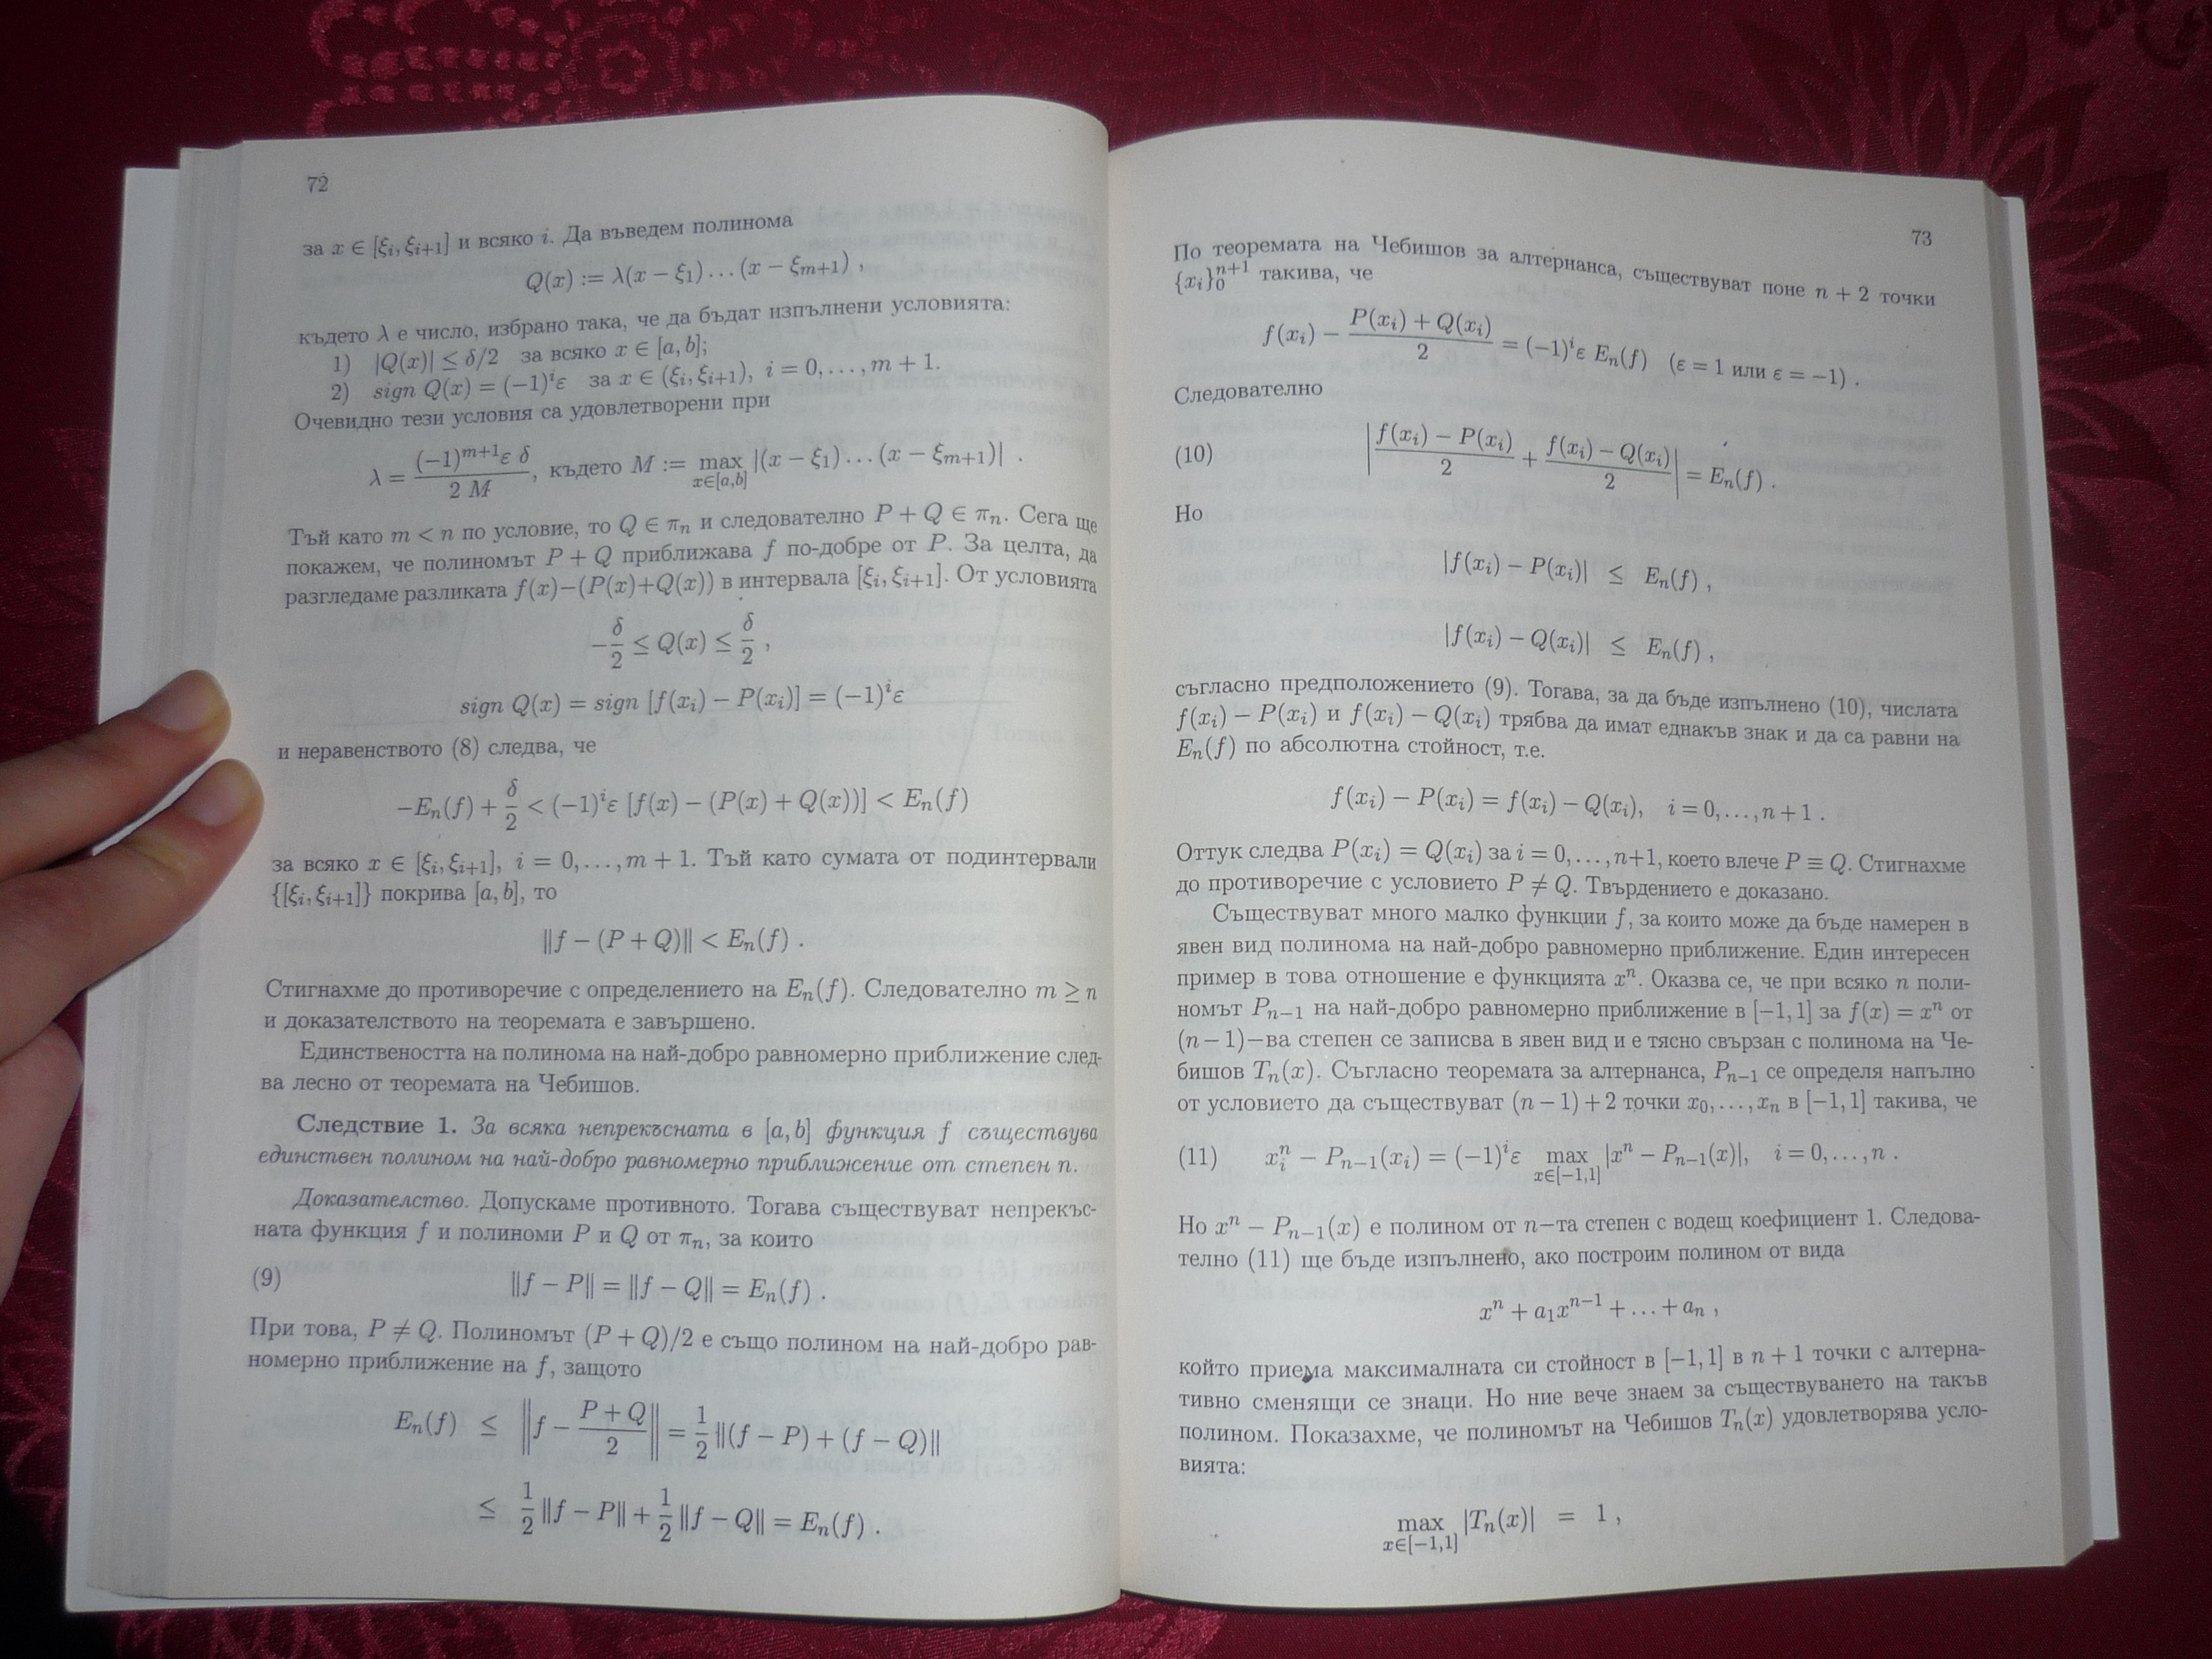 72
за x ∈ [ξi, ξi+1] и всяко i. Да въведем полинома
Q(x) := λ(x − ξ1) … (x − ξm+1) ,
където λ е число, избрано така, че да бъдат изпълнени условията:
1) |Q(x)| ≤ δ/2 за всяко x ∈ [a, b];
2) sign Q(x) = (−1)^i ε за x ∈ (ξi, ξi+1), i = 0, …, m + 1.
Очевидно тези условия са удовлетворени при
λ = (−1)^{m+1} ε δ / 2 M , където M := max_{x∈[a,b]} |(x − ξ1) … (x − ξm+1)| .
Тъй като m < n по условие, то Q ∈ πn и следователно P + Q ∈ πn. Сега ще
покажем, че полиномът P + Q приближава f по-добре от P. За целта, да
разгледаме разликата f(x)−(P(x)+Q(x)) в интервала [ξi, ξi+1]. От условията
−δ/2 ≤ Q(x) ≤ δ/2 ,
sign Q(x) = sign [f(xi) − P(xi)] = (−1)^i ε
и неравенството (8) следва, че
−En(f) + δ/2 < (−1)^i ε [f(x) − (P(x) + Q(x))] < En(f)
за всяко x ∈ [ξi, ξi+1], i = 0, …, m + 1. Тъй като сумата от подинтервали
{[ξi, ξi+1]} покрива [a, b], то
‖f − (P + Q)‖ < En(f) .
Стигнахме до противоречие с определението на En(f). Следователно m ≥ n
и доказателството на теоремата е завършено.
Единствеността на полинома на най-добро равномерно приближение след-
ва лесно от теоремата на Чебишов.
Следствие 1. За всяка непрекъсната в [a, b] функция f съществува
единствен полином на най-добро равномерно приближение от степен n.
Доказателство. Допускаме противното. Тогава съществуват непрекъс-
ната функция f и полиноми P и Q от πn, за които
(9) ‖f − P‖ = ‖f − Q‖ = En(f) .
При това, P ≠ Q. Полиномът (P + Q)/2 е също полином на най-добро рав-
номерно приближение на f, защото
En(f) ≤ ‖f − (P + Q)/2‖ = 1/2 ‖(f − P) + (f − Q)‖
≤ 1/2 ‖f − P‖ + 1/2 ‖f − Q‖ = En(f) .
73
По теоремата на Чебишов за алтернанса, съществуват поне n + 2 точки
{xi}_0^{n+1} такива, че
f(xi) − (P(xi) + Q(xi))/2 = (−1)^i ε En(f) (ε = 1 или ε = −1) .
Следователно
(10) |(f(xi) − P(xi))/2 + (f(xi) − Q(xi))/2| = En(f) .
Но
|f(xi) − P(xi)| ≤ En(f) ,
|f(xi) − Q(xi)| ≤ En(f) ,
съгласно предположението (9). Тогава, за да бъде изпълнено (10), числата
f(xi) − P(xi) и f(xi) − Q(xi) трябва да имат еднакъв знак и да са равни на
En(f) по абсолютна стойност, т.е.
f(xi) − P(xi) = f(xi) − Q(xi), i = 0, …, n + 1 .
Оттук следва P(xi) = Q(xi) за i = 0, …, n+1, което влече P ≡ Q. Стигнахме
до противоречие с условието P ≠ Q. Твърдението е доказано.
Съществуват много малко функции f, за които може да бъде намерен в
явен вид полинома на най-добро равномерно приближение. Един интересен
пример в това отношение е функцията x^n. Оказва се, че при всяко n поли-
номът Pn−1 на най-добро равномерно приближение в [−1, 1] за f(x) = x^n от
(n − 1)−ва степен се записва в явен вид и е тясно свързан с полинома на Че-
бишов Tn(x). Съгласно теоремата за алтернанса, Pn−1 се определя напълно
от условието да съществуват (n − 1) + 2 точки x0, …, xn в [−1, 1] такива, че
(11) xi^n − Pn−1(xi) = (−1)^i ε max_{x∈[−1,1]} |x^n − Pn−1(x)|, i = 0, …, n .
Но x^n − Pn−1(x) е полином от n−та степен с водещ коефициент 1. Следова-
телно (11) ще бъде изпълнено, ако построим полином от вида
x^n + a1x^{n−1} + … + an ,
който приема максималната си стойност в [−1, 1] в n + 1 точки с алтерна-
тивно сменящи се знаци. Но ние вече знаем за съществуването на такъв
полином. Показахме, че полиномът на Чебишов Tn(x) удовлетворява усло-
вията:
max_{x∈[−1,1]} |Tn(x)| = 1 ,